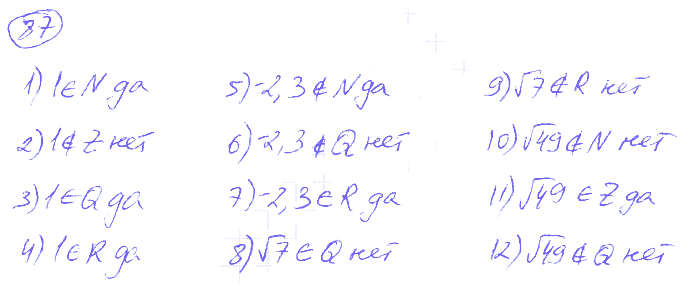 87
1) 1∈N да
2) 1∉Z нет
3) 1∈Q да
4) 1∈R да
5) -2,3∉N да
6) -2,3∉Q нет
7) -2,3∈R да
8) √7∈Q нет
9) √7∉R нет
10) √49∉N нет
11) √49∈Z да
12) √49∉Q нет